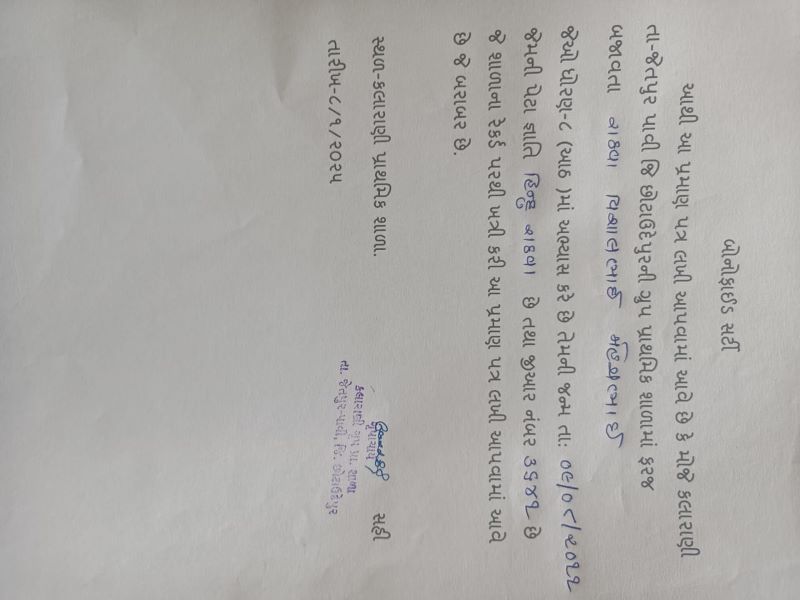 બોનોફાઈડ સર્ટી
આથી આ પ્રમાણ પત્ર લખી આપવામાં આવે છે કે મોજે કલારાણી
તા-જેતપુર પાવી જિ છોટાઉદેપુરની ગ્રુપ પ્રાથમિક શાળામાં ફરજ
બજાવતા રાઠવા વિશાલભાઈ
જેઓ ધોરણ-૮ (આઠ )માં અભ્યાસ કરે છે તેમની જન્મ તા:
જેમની પેટા જ્ઞાતિ હિન્દુ રાઠવા છે તથા જીઆર નંબર ૩૬૪૨ છે
જે શાળાના રેકર્ડ પરથી ખત્રી કરી આ પ્રમાણ પત્ર લખી આપવામાં આવે
છે જે બરાબર છે.
સ્થળ-કલારાણી પ્રાથમિક શાળા.
તારીખ-૮/૧/૨૦૨૫
સહી
કલારાણી ગ્રુપ પ્રા. શાળા
તા. જેતપુર-પાવી, જિ. છોટાઉદેપુર